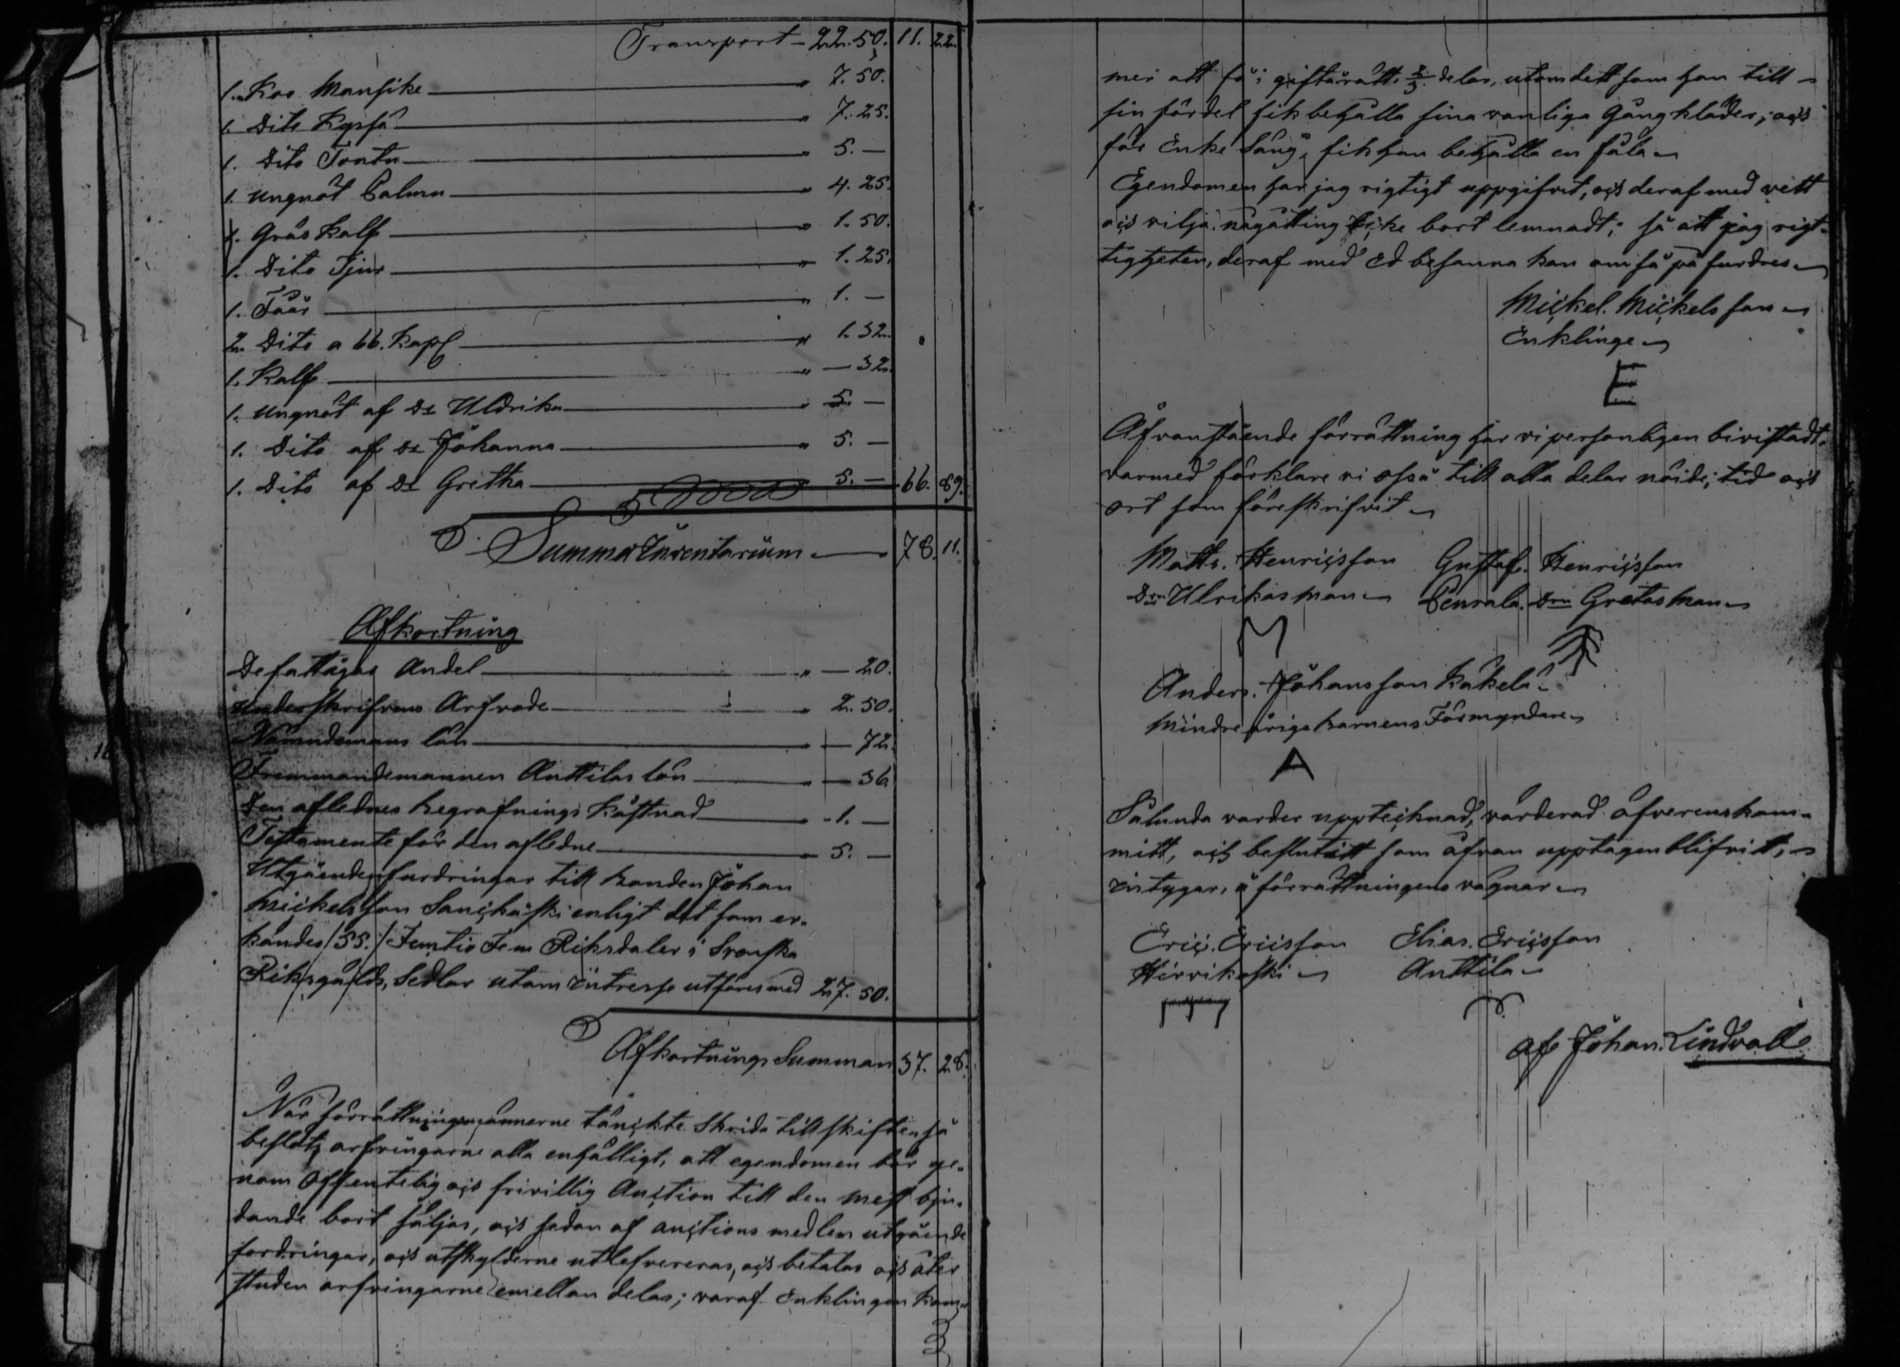 Transport - 22. 50. 11. 22.
1. Koo Mansike " 7. 50.
1. Dito Kyssä " 7. 25.
1. Dito Tontu " 5. —
1. ungnöt Palmu " 4. 25.
1. Gräs Kalf " 1. 50.
1. Dito Tjur " 1. 25.
1. Fåår " 1. —
2. Dito a 66. Kop " 1. 32.
1. Kalf " — 32.
1. ungnöt af Dr Uldrika " 5. —
1. Dito af Dr Johanna " 5. —
1. Dito af Dr Gretha 5. — 66. 89.
Summa Inventarium — 78. 11.
Afkortning
De fattigas andel " — 20.
underskrifvens Arfvode " 2. 50.
Nämndemans lön " — 72.
Fremmandemannen Anttilas lön — 36
Den aflednes begrafnings kåstnad " - 1. —
Testamente för den afledne 5. —
Utgående fordringar till bonden Johan
Mickelsson enligt det som er-
kändes /55./ Femtio Fem Riksdaler i Svenska
Riksgälds, Sedlar utom Intresse utföres med 27. 50.
Afkortnings Summan 37. 28.
När förrättningsmännerne tänckte skrida till skiften så
beslöts arfvingarne alla enhälligt, att egendomen bör ge-
nom offentelig och frivillig Auction till den mest bju-
dande bort säljas, och sedan af auctions medlen utgående
fordringar, och utskylderne utlefvereras, och betalas och åter
studen arfvingarne emellan delas; varaf Enklingen kom-
mer att få i giftorätt 2/3 delar, utom dett som han till
sin fördel fik behålla sina vanliga Gångkläder, och
för Enke Säng, fik han behålla en fåla
Egendomen har jag rigtigt uppgifvit, och deraf med vett
och vilja någåtting icke bort lemnadt; så att jag rigt-
tigheten, deraf med Ed besanna kan om så på fordres
Mickel. Mickelsson
Enklinge
E
Åfvanstående förrättning har vi personligen bivistadt,
varmed förklare vi osså till alla delar nöide; tid och
ort som föreskrifvit
Matts. Henricsson Gustaf. Henricsson
Drn Ulrikas man Penrala. Drn Gretas Man
M
Anders. Johansson Käkelä
Mindreåriga barnens Förmyndare
A
Sålunda varder uppteicknad, värderad öfverenskom-
mitt, och beslutitt som åfvan upptagen blifvitt,
intygar, å förrättningens vägnar
Eric. Ericsson Elias. Ericsson
Hirvikoski Anttila
af Johan. Lindvall